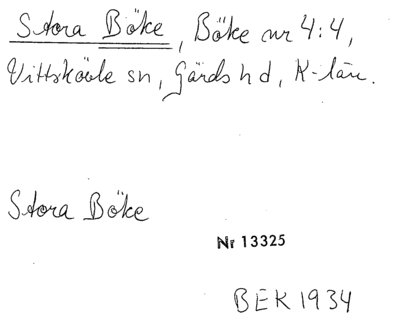 Stora Böke, Böke nr 4:4,
Vittskövle sn, Gärds hd, K-län.
Stora Böke
Nr 13325
BEK 1934